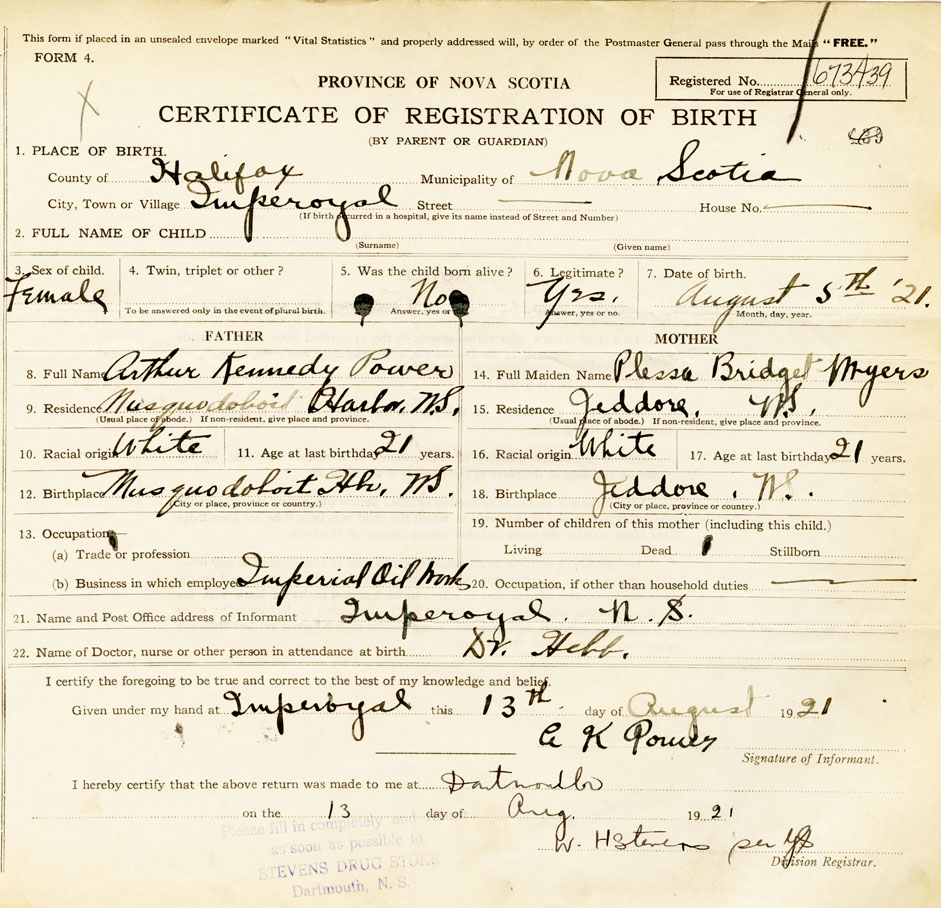 This form if placed in an unsealed envelope marked "Vital Statistics" and properly addressed will, by order of the Postmaster General pass through the Mails "FREE."
FORM 4.
PROVINCE OF NOVA SCOTIA
Registered No. 673439
For use of Registrar General only.
X
CERTIFICATE OF REGISTRATION OF BIRTH
(BY PARENT OR GUARDIAN)
1. PLACE OF BIRTH.
County of Halifax Municipality of Nova Scotia
City, Town or Village Imperoyal Street House No.
(If birth occurred in a hospital, give its name instead of Street and Number)
2. FULL NAME OF CHILD
(Surname) (Given name)
3. Sex of child. 4. Twin, triplet or other? 5. Was the child born alive? 6. Legitimate? 7. Date of birth.
Female No Yes. August 5th '21.
To be answered only in the event of plural birth. Answer, yes or no Answer, yes or no. Month, day, year.
FATHER MOTHER
8. Full Name Arthur Kennedy Power 14. Full Maiden Name Plessa Bridget Myers
9. Residence Musquodoboit Harbor, N.S. 15. Residence Jeddore, N.S.
(Usual place of abode.) If non-resident, give place and province. (Usual place of abode.) If non-resident, give place and province.
10. Racial origin White 11. Age at last birthday 21 years. 16. Racial origin White 17. Age at last birthday 21 years.
12. Birthplace Musquodoboit Hbr, N.S. 18. Birthplace Jeddore, N.S.
(City or place, province or country.) (City or place, province or country.)
13. Occupation 19. Number of children of this mother (including this child.)
(a) Trade or profession Living Dead Stillborn
(b) Business in which employed Imperial Oil Work 20. Occupation, if other than household duties
21. Name and Post Office address of Informant Imperoyal. N.S.
22. Name of Doctor, nurse or other person in attendance at birth Dr. Hebb.
I certify the foregoing to be true and correct to the best of my knowledge and belief.
Given under my hand at Imperoyal this 13th day of August 1921
A K Power
Signature of Informant.
I hereby certify that the above return was made to me at Dartmouth
on the 13 day of Aug. 1921
W. H Stevens per
Division Registrar.
Please fill in completely and
as soon as possible to
STEVENS DRUG STORE
Dartmouth, N. S.